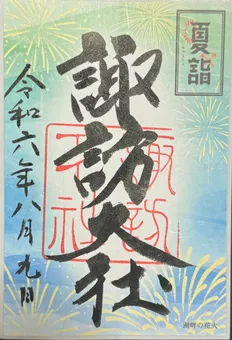 夏詣
諏訪大社
諏訪
大社
令和六年八月九日
湖畔の花火